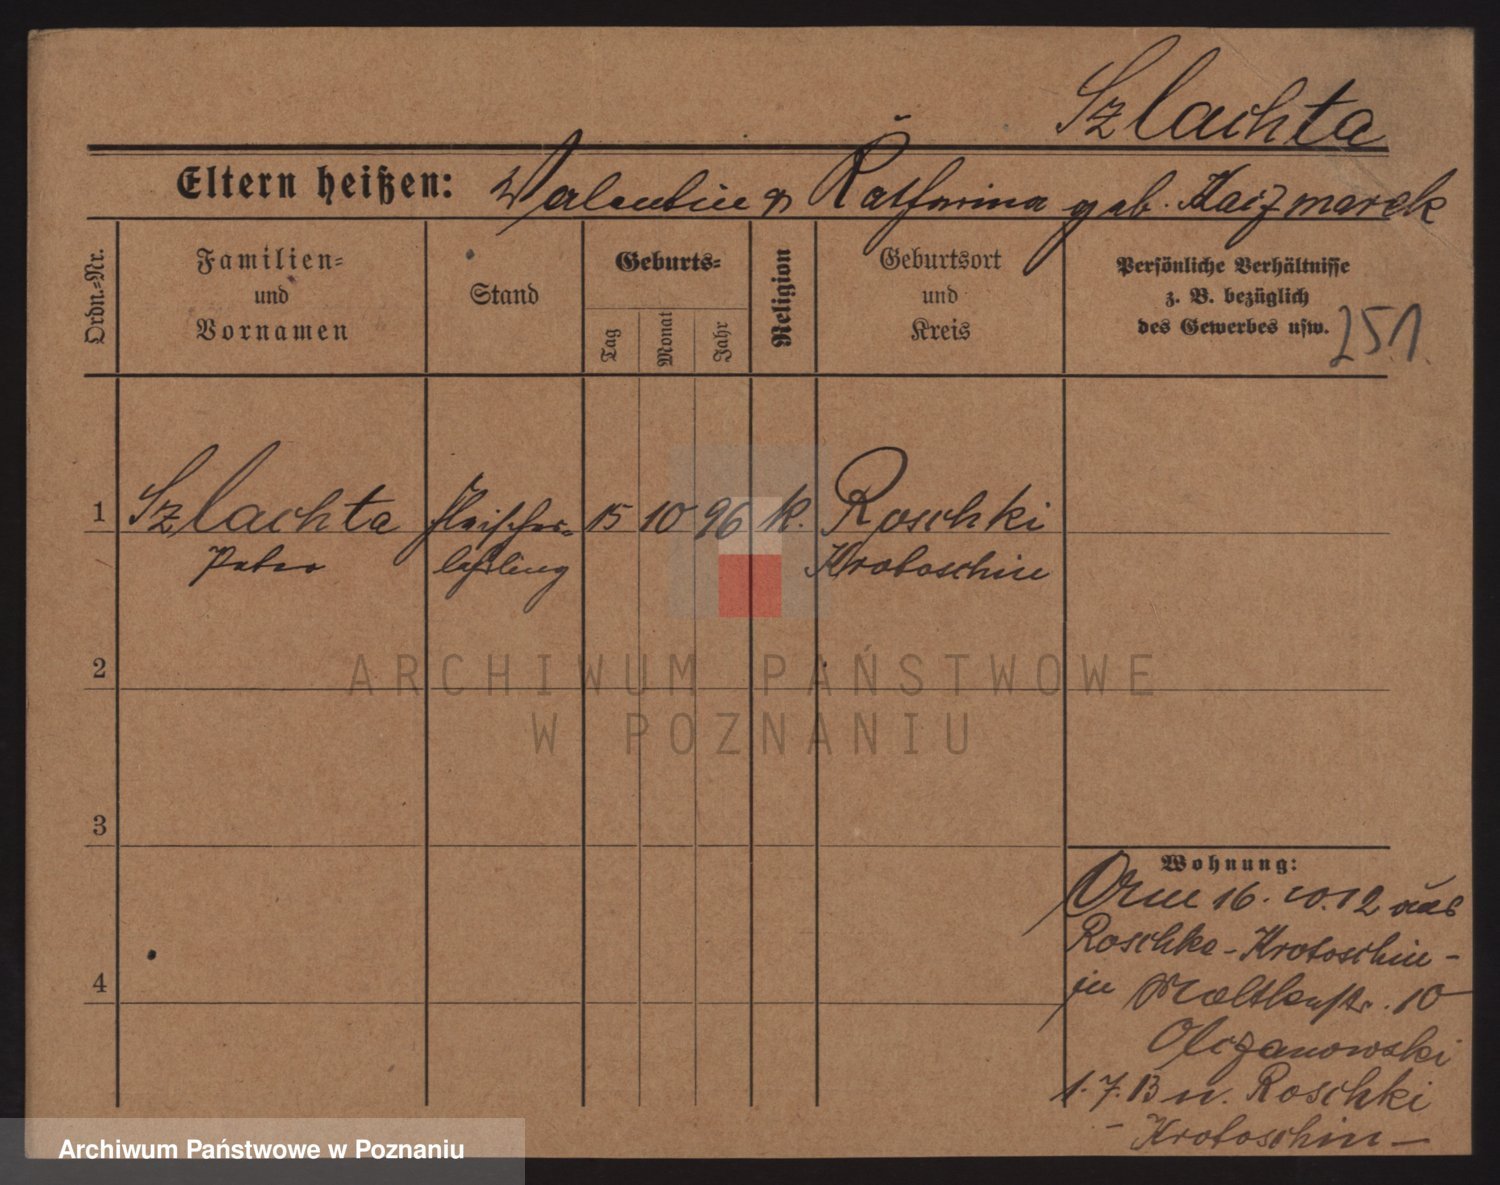 Szlachta
Eltern heißen: Valentin & Katharina geb. Kaczmarek
Ordn.-Nr.
Familien-
und
Vornamen
Stand
Geburts-
Tag
Monat
Jahr
Religion
Geburtsort
und
Kreis
Persönliche Verhältnisse
z. B. bezüglich
des Gewerbes usw.
251.
1 Szlachta Fleischer- 15 10 96 k. Roschki
Peter lehrling Krotoschin
2
3
4
Wohnung:
16.10.12 aus
Roschke - Krotoschin -
in Moltkestr. 10
Olczanowski
1.7.13 n. Roschki
- Krotoschin -
ARCHIWUM PAŃSTWOWE
W POZNANIU
Archiwum Państwowe w Poznaniu